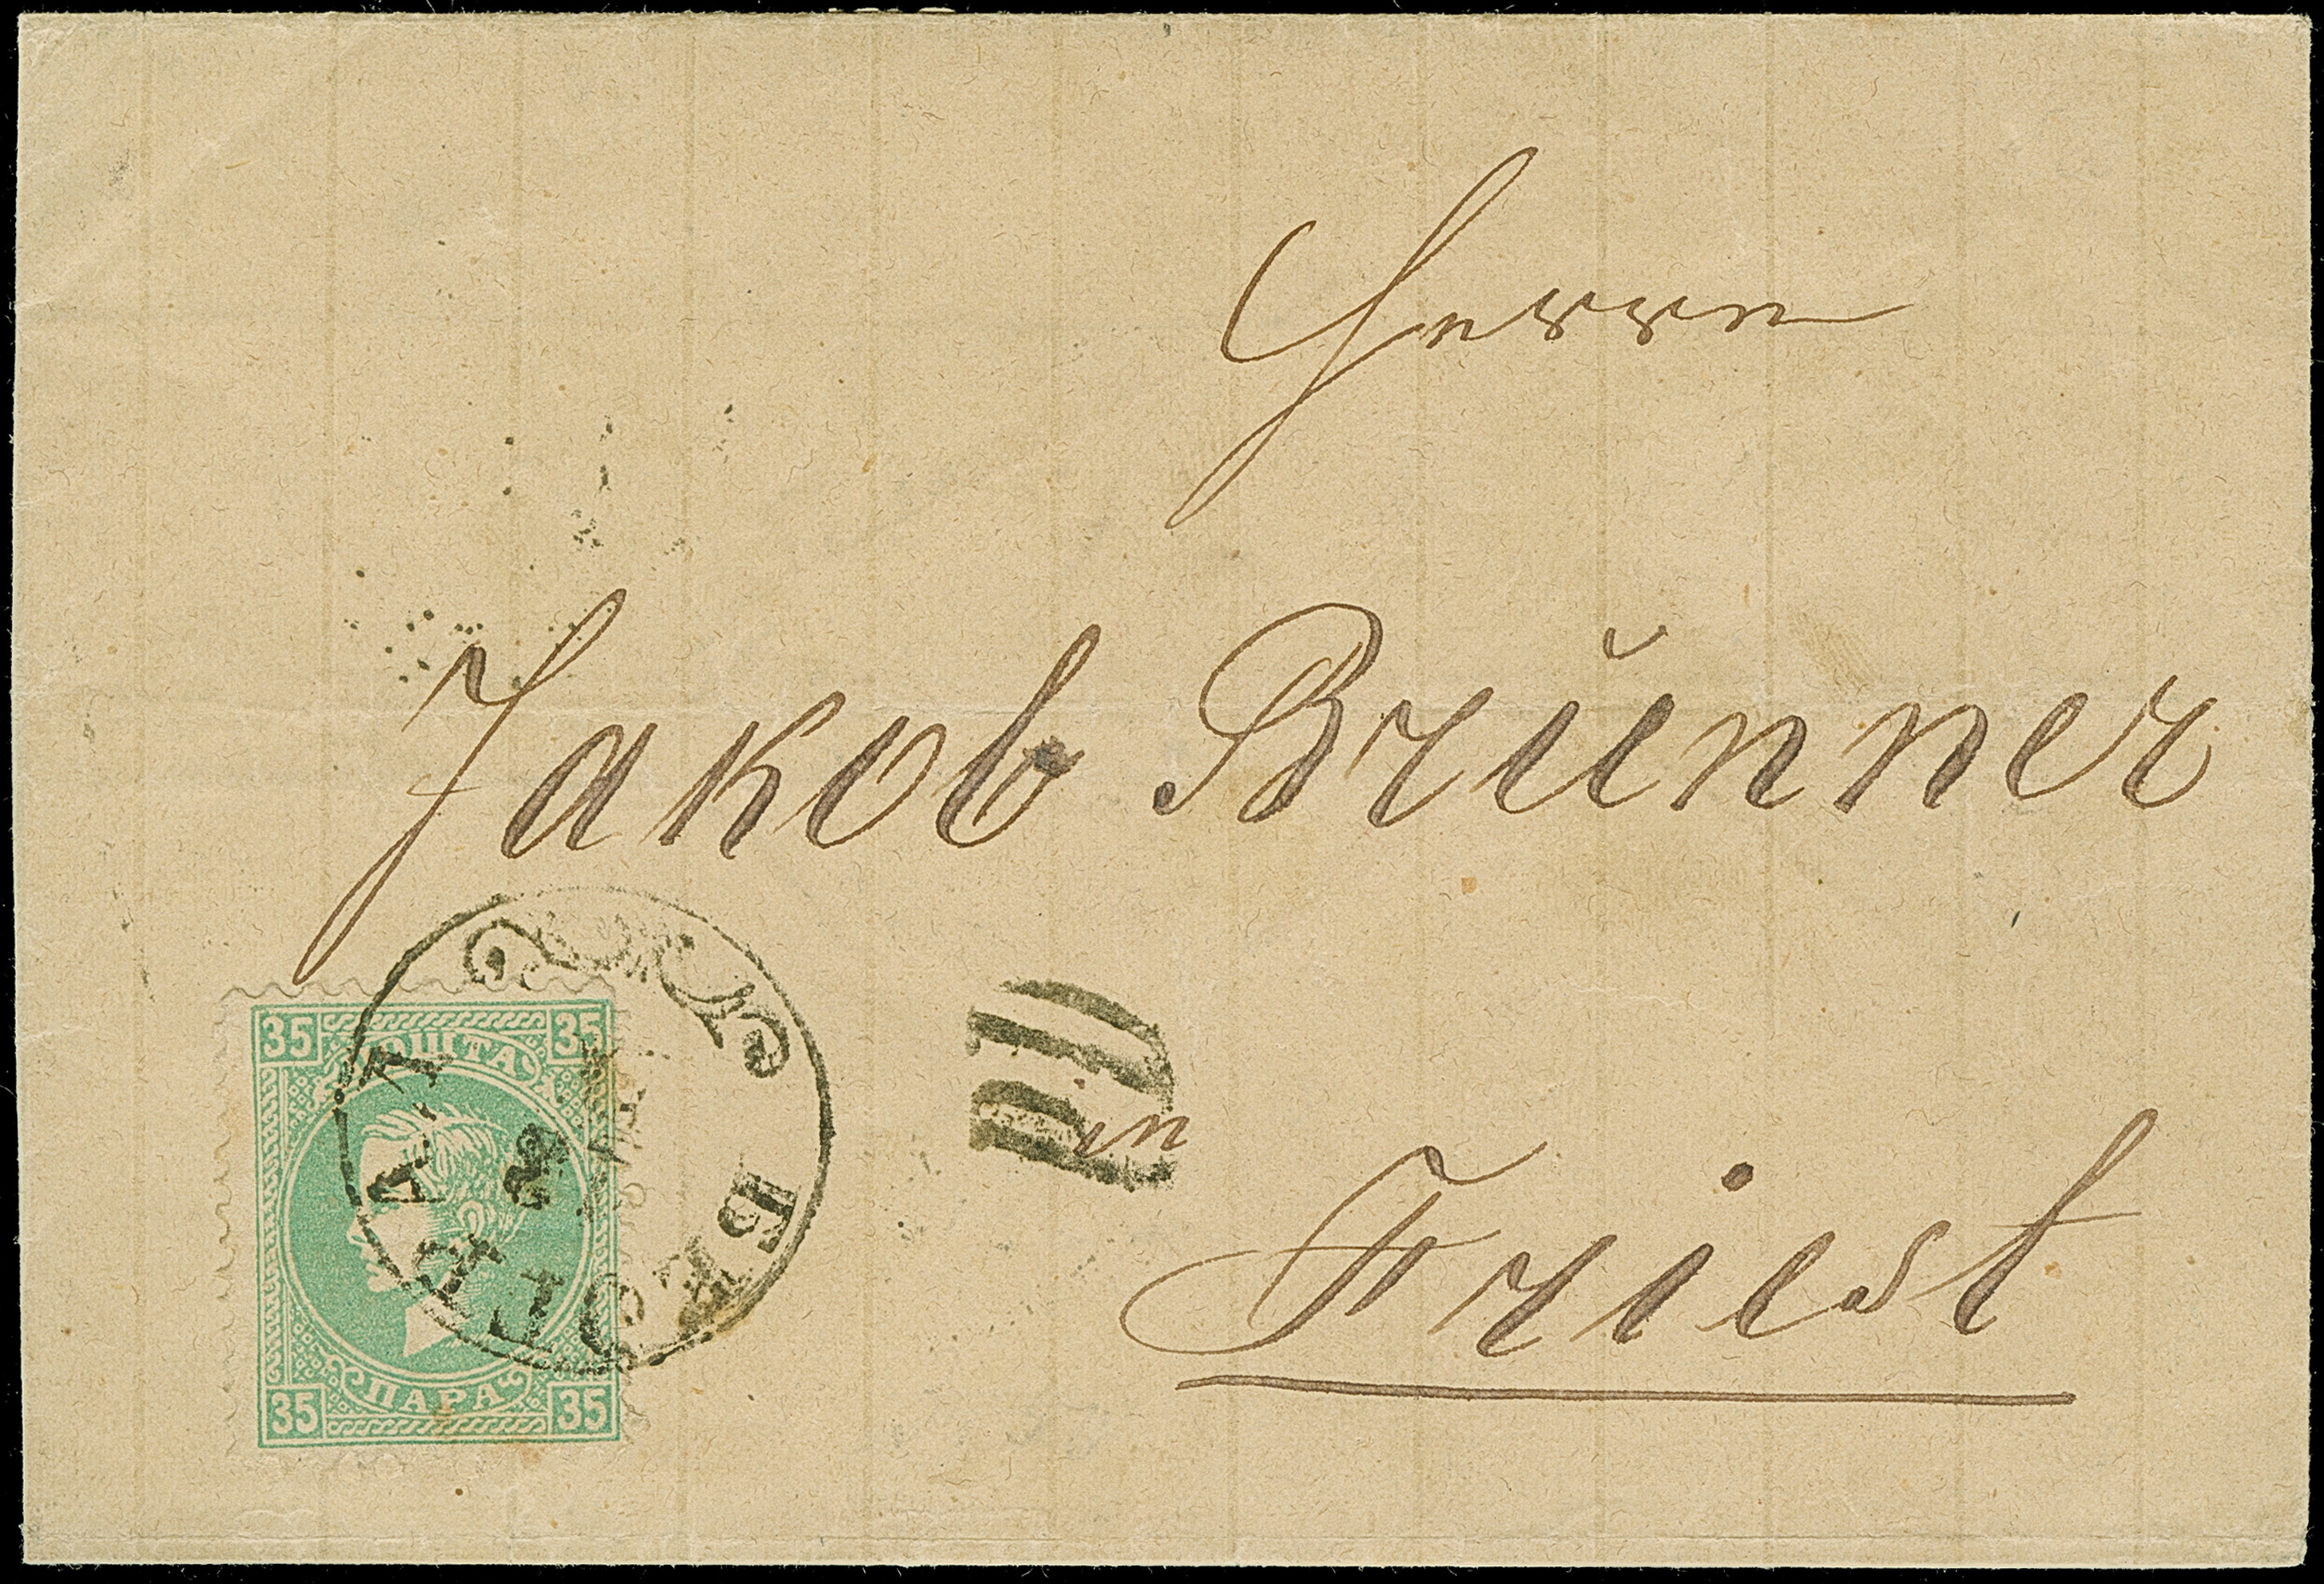 Herrn
Jakob Brünner
in
Triest
35 ПОШТА 35
БЕОГРАД
35 ПАРА 35